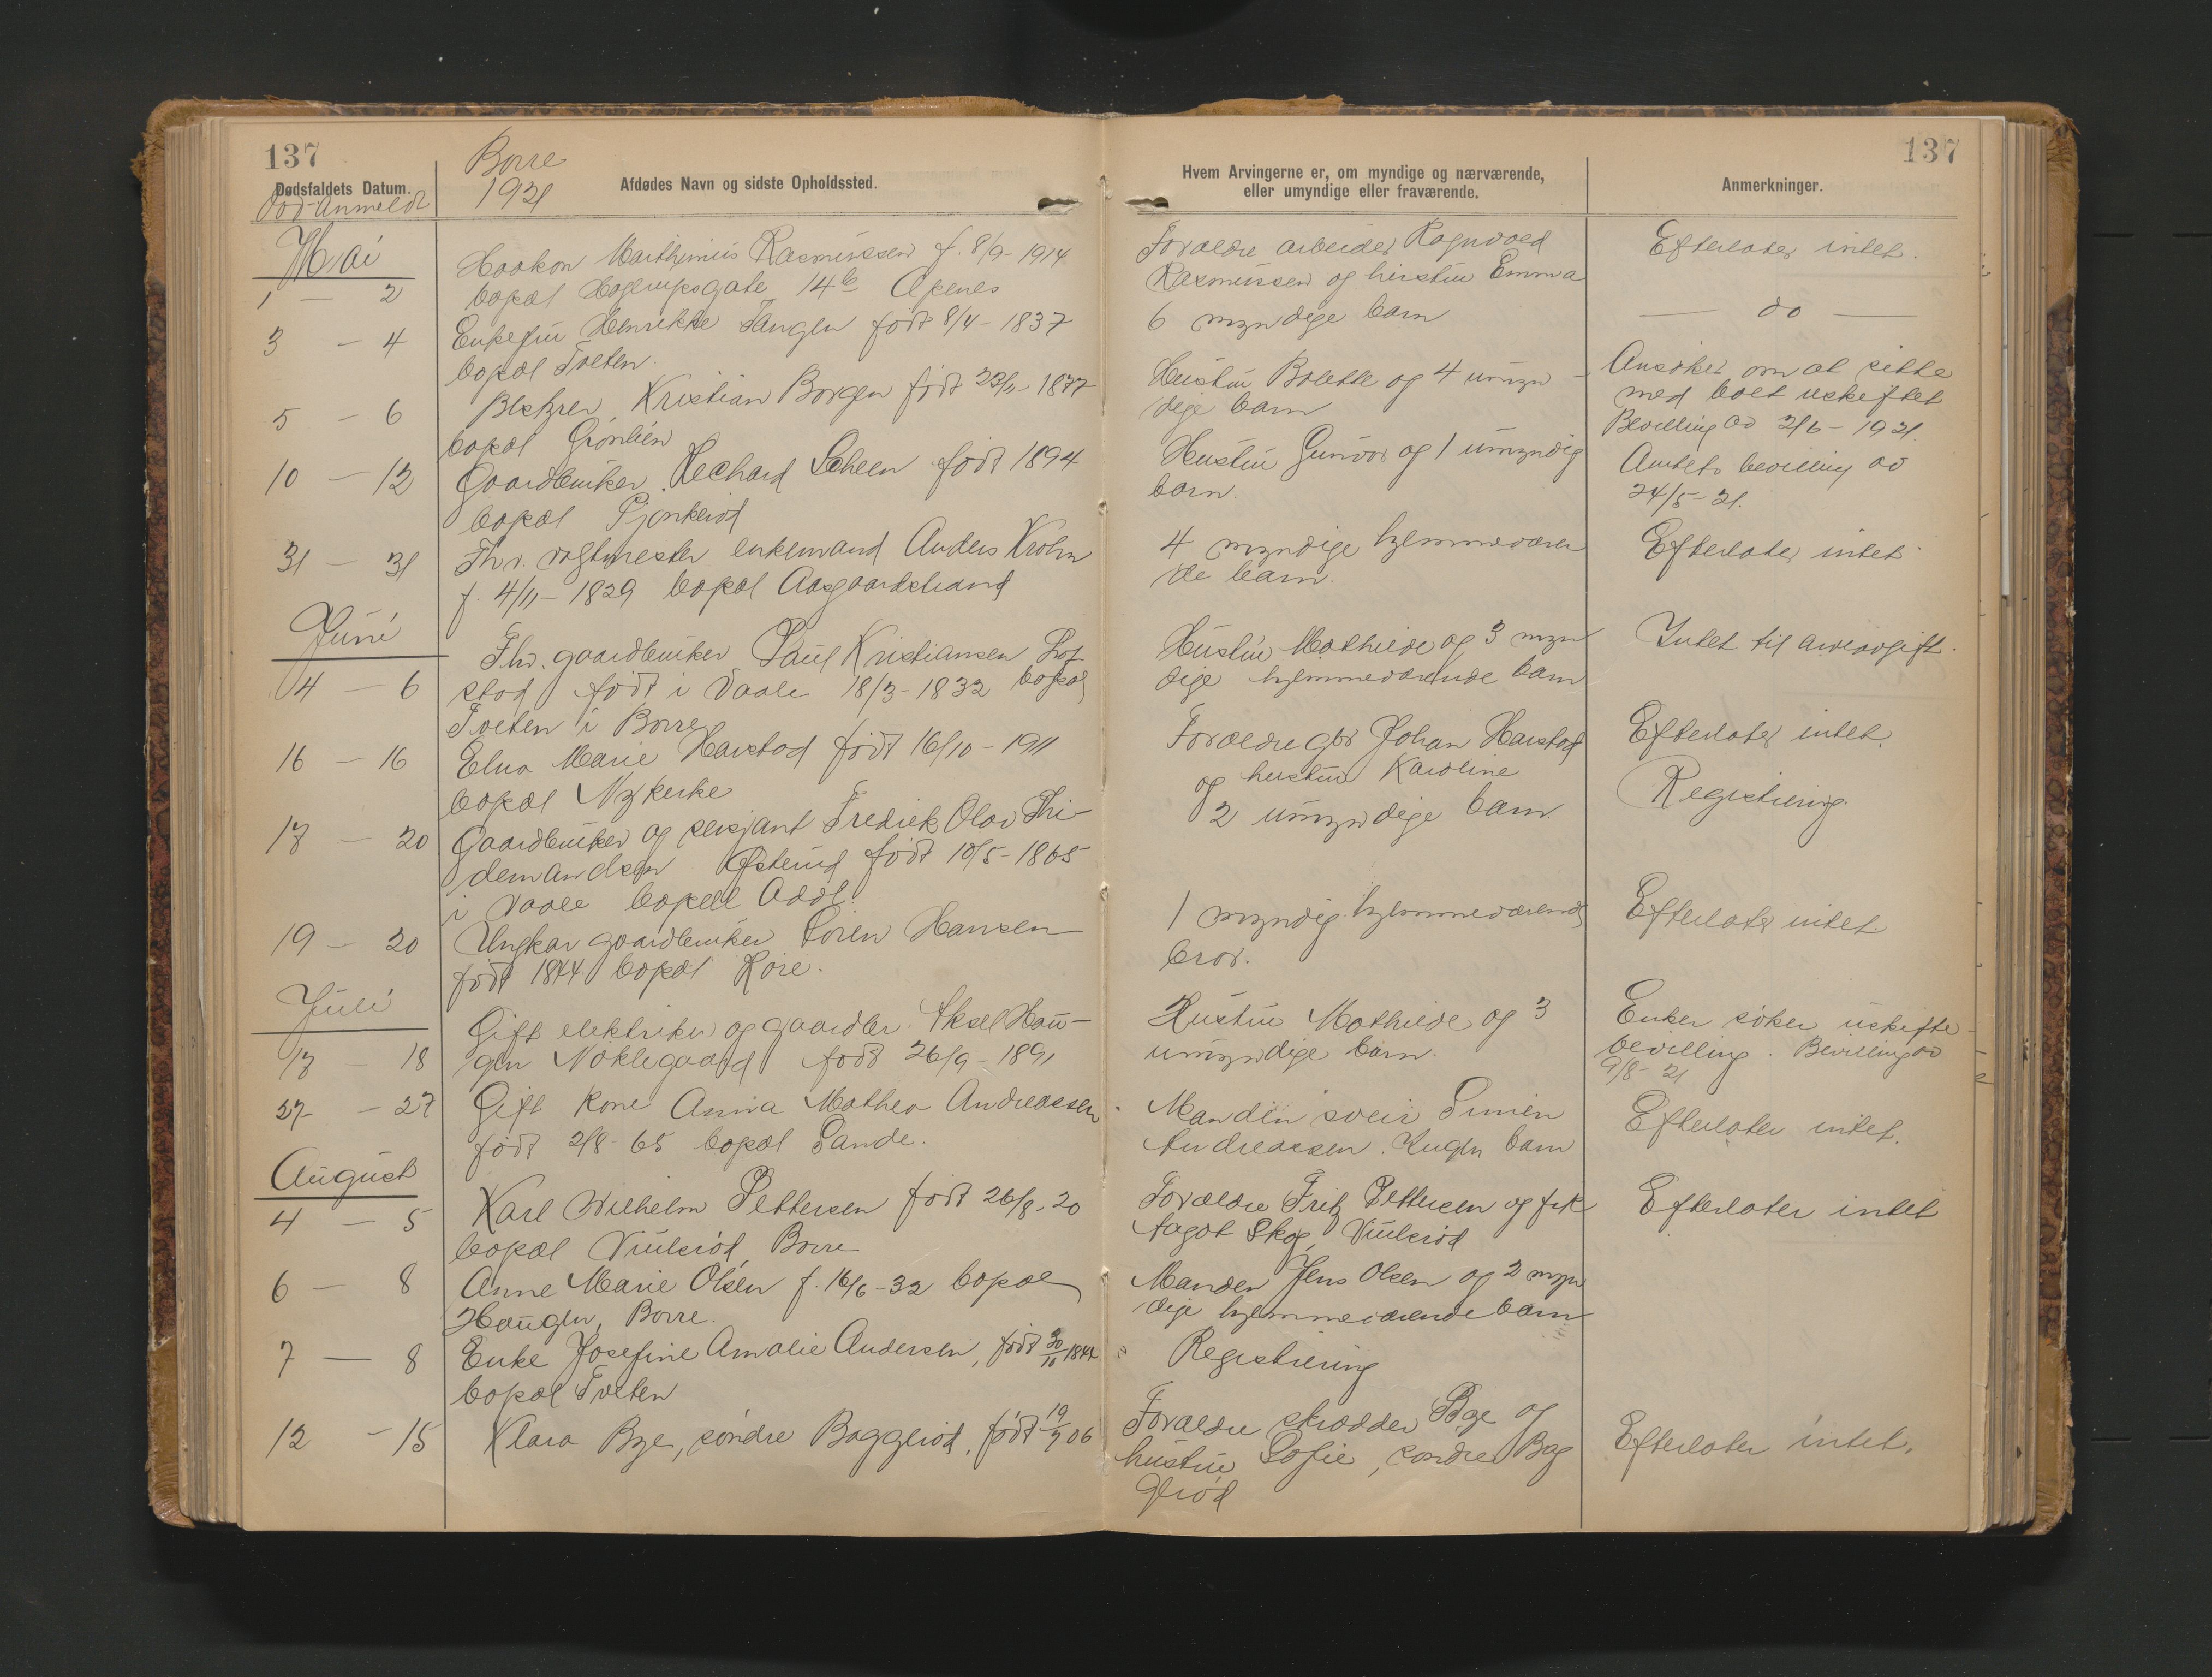 137
Borre
1921
Dødsfaldets Datum.
Død-Anmeldt
Afdødes Navn og sidste Opholdssted.
Mai
1 — 2
Haakon Marthinius Rasmussen f. 8/9-1914
bopæl 14b Apenes
3 — 4
Enkefru Henrikke Tangen født 8/4-1837
bopæl Tveten.
5 — 6
Kristian Borgen født 23/11-1877
bopæl Grønlien
10 — 12
Gaardbruker Rechard Scheen født 1894
bopæl
31 — 31
Fhv. vagtmester enkemand Anders Krohn
f. 4/11-1829 bopæl Aasgaardstrand
Juni
4 — 6
Fhv. gaardbruker Paul Kristiansen
stad født i Vaale 18/3-1832 bopæl
Tveten i Borre
16 — 16
Elna Marie Harstad født 16/10-1911
bopæl Nykirke
17 — 20
Gaardbruker og sersjant Fredrik Olav Thi-
demandsen født 10/5-1865
i Vaale bopæl
19 — 20
Ungkar gaardbruker Sören Hansen
født 1844 bopæl
Juli
17 — 18
Gift elektriker og gaardbr. Aksel Hau-
gen Nöklegaard født 26/9-1891
27 — 27
Gift kone Anna Mathea Andreassen
født 2/8 65 bopæl Sande.
August
4 — 5
Karl Wilhelm Pettersen født 26/8-20
bopæl Viulsrød, Borre
6 — 8
Anne Marie Olsen f. 16/6-32 bopæl
Haugen, Borre.
7 — 8
Enke Josefine Amalie Andersen, født 30/10 1844
bopæl Tveten
12 — 15
Klara Bye, søndre Baggerød, født 19/7 06
137
Hvem Arvingerne er, om myndige og nærværende,
eller umyndige eller fraværende.
Anmerkninger.
Forældre arbeider Ragnvald
Rasmussen og hustru Emma
Efterlater intet.
6 myndige barn
— do —
Hustru Bolette og 4 umyn-
dige barn
Ansøker om at sitte
med boet uskiftet
Bevilling av 2/6-1921.
Hustru Gunvor og 1 umyndig
barn.
Amtets bevilling av
24/5-21.
4 myndige hjemmeværen
de barn.
Efterlater intet
Hustru Mathilde og 3 myn
dige hjemmeværende barn
Intet til arveavgift.
Forældre gbr Johan Harstad
og hustru Karoline
Efterlater intet.
2 umyndige barn.
Registrering.
1 myndig hjemmeværende
bror.
Efterlater intet.
Hustru Mathilde og 3
umyndige barn.
Enken søker uskifte-
bevilling. Bevilling av
9/8-21
Manden Simen
Andreassen. Ingen barn
Efterlater intet.
Forældre Fritz Pettersen og frk
Aagot Skog, Viulsrød
Efterlater intet
Manden Jens Olsen og 2 myn
dige hjemmeværende barn
Registrering
Forældre skrædder Bye og
hustru Sofie, søndre Bag
gerød
Efterlater intet.